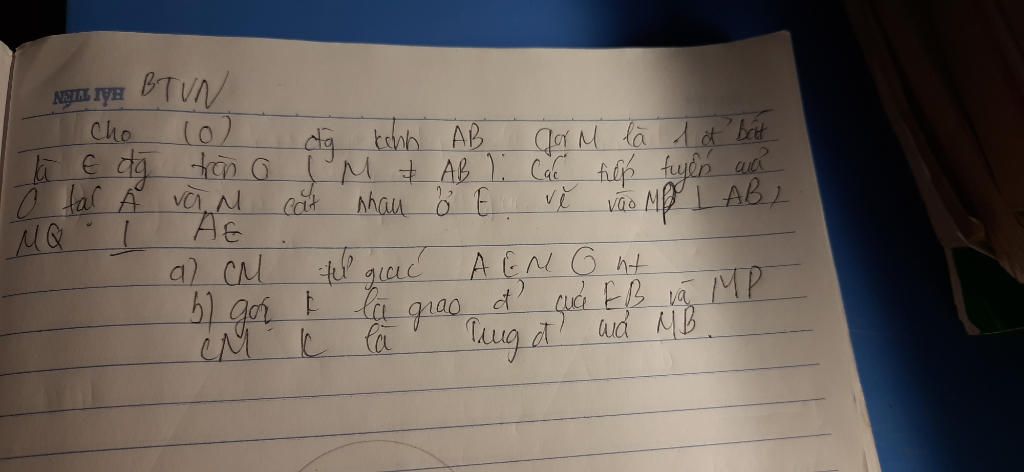 HẢI TIẾN BTVN
Cho (O) đg kính AB gọi M là 1 đ' bất
kì ∈ đg tròn O ( M ≠ AB ). Các tiếp tuyến của
O tại A và M cắt nhau ở E. vẽ vào MP ⊥ AB,
MQ ⊥ AE.
a) CM tứ giác AEMO nt
b) gọi K là giao đ' của EB và MP
CM K là Trung đ' của MB.